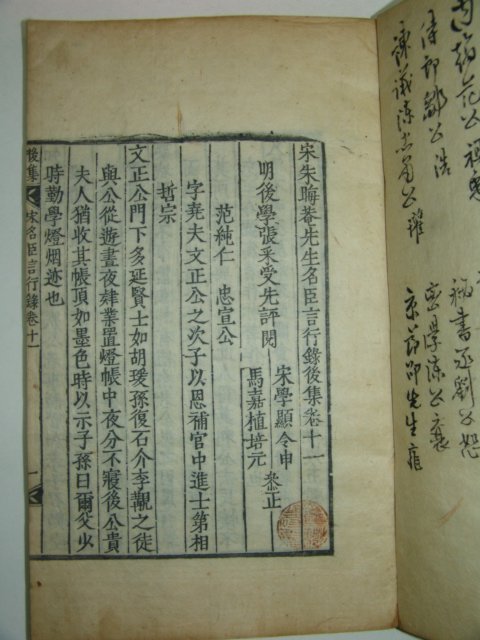 范公祖禹
秘書丞劉公恕
侍郎鄒公浩
密學陳公襄
諫議陳忠肅公瓘
康節邵先生雍
宋朱晦菴先生名臣言行錄後集卷十一
明後學張采受先評閱
宋學顯令申
馬嘉植培元
叅正
范純仁 忠宣公
字堯夫文正公之次子以恩補官中進士第相
哲宗
文正公門下多延賢士如胡瑗孫復石介李覯之徒
與公從遊晝夜肄業置燈帳中夜分不寢後公貴
夫人猶收其帳頂如墨色時以示子孫曰爾父少
時勤學燈烟迹也
後集 宋名臣言行錄卷十一 一